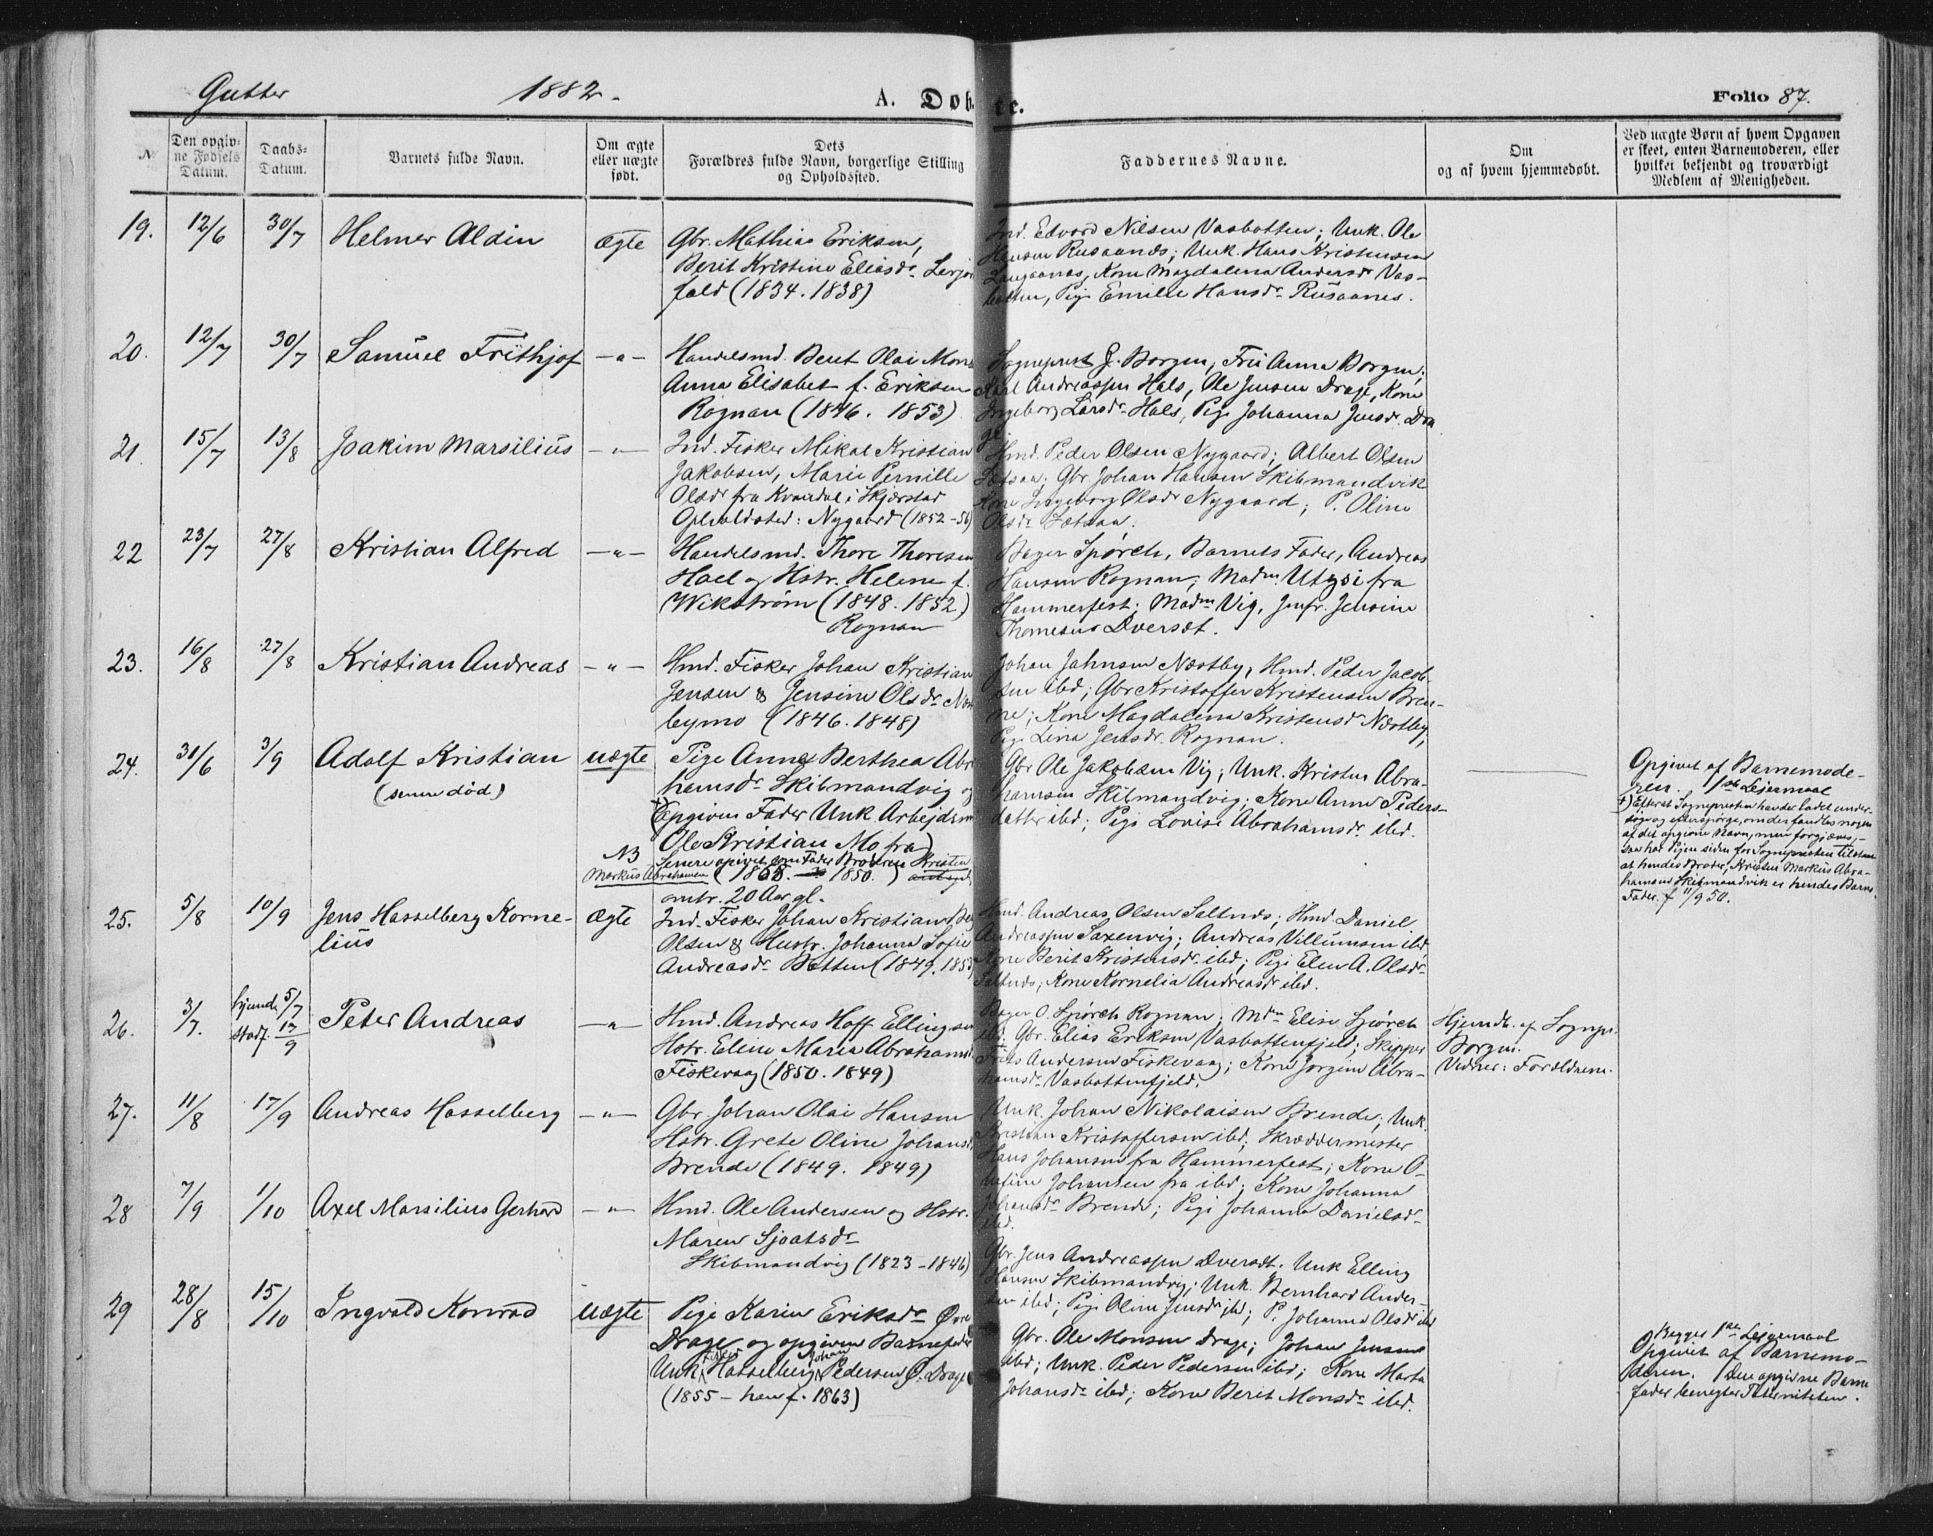 Gutter 1882. A. Døbte. Folio 87.
N
Den opgivne Fødsels Datum.
Daabs-Datum.
Barnets fulde Navn.
Om ægte eller uægte født.
Dets Forældres fulde Navn, borgerlige Stilling og Opholdssted.
Faddernes Navne.
Om og af hvem hjemmedøbt.
Ved uægte Børn af hvem Opgaven er skeet, enten Barnemoderen, eller hvilket bekjendt og troværdigt Medlem af Menigheden.
19. 12/6 30/7 Helmer Aldin ægte
Gbr. Mathias Eriksen,
Berit Kristine Eliasdr.
fald (1834. 1838)
Ind. Edvard Nilsen Vasbotten; Unk. Ole
Hansen Rusaanes; Unk. Hans Kristensen
Langaanas, Kone Magdalena Andersdr Vas-
botten, Pige Emilie Hansdr. Rusaanes.
20. 12/7 30/7 Samuel Frithjof -"-
Handelsmd. Bent Olai Mons
Anna Elisabet f. Eriksen
Rognan (1846. 1853)
Sogneprest G. Borgen, Fru Anna Borgen,
Karl Andreassen Hals, Ole Jensen Drage, Kone
Ingeborg Larsdr. Hals, Pige Johanna Jensdr. Dra
ge.
21. 15/7 13/8 Joakim Marsilius -"-
Ind. Fisker Mikal Kristian
Jakobsen, Marie Pernille
Olsdr fra Kvændal i Skjerstad
Opholdsted: Nygaard (1852-56)
Hmd. Peder Olsen Nygaard; Albert Olsen
Gbr. Johan Hansen Skibmandvik
Kone Ingeborg Olsdr Nygaard; P. Oline
Olsdr.
22 23/7 27/8 Kristian Alfred -"-
Handelsmd. Thore Thoresen
Hoel og Hstr. Helene f.
Wikstrøm (1848. 1852)
Rognan
Bager Sjørch, Barnets Fader, Andreas
Hansen Rognan; Madm Utysi fra
Hammerfest; Madm Vig, Jmfr. Jensine
Thomesus Dversæt.
23. 16/8 27/8 Kristian Andreas -"-
Hmd. Fisker Johan Kristian
Jensen & Jensine Olsdr. Næst
bymo (1846. 1848)
Johan Jahnsen Næstby, Hmd. Peder Jacob-
sen ibd; Gbr Kristoffer Kristensen Bren-
ne; Kone Magdalena Kristensdr Næstby,
Pige Lina Jensdr. Rognan.
24. 31/6 3/9 Adolf Kristian uægte
(senere død)
Pige Anne Berthea Abra
hamsdr Skibmandvig og
Opgiven Fader Unk Arbejdsm
Ole Kristian Mo fra)
NB Senere opgivet som Fader Broderen Kristen
Markus Abrahamsen (1858. 1850.)
omtr. 20 Aar gl.
Gbr Ole Jakobsen Vig; Unk. Kristen Abra-
hamsen Skibmandvig; Kone Anne Peders-
datter ibd; Pige Lovise Abrahamsdr ibd.
Opgivet af Barnemode-
ren. 1ste Lejermaal
+) Efterat Sognepresten havde ladet under-
søge og efterspørge, om der fandtes nogen
af det opgivne Navn, men forgjæves,
saa har Pigen siden for Sognepresten tilstaaet
at hendes Broder, Kristen Markus Abra-
hamsen Skibmandvik er hendes Barns
Fader. f 11/9 50.
25. 5/8 10/9 Jens Hasselberg Korne-
lius Ægte
Ind. Fisker Johan Kristian
Olsen & Hustr. Johanna Sofie
Andreasdr. Botten (1849. 1853)
Hmd. Andreas Olsen Saltnes; Hmd. Daniel
Andreassen Saxenvig; Andreas Villumsen ibd,
Kone Berit Kristensdr ibd; Pige Elen A. Olsdr.
Saltnes; Kone Kornelia Andreasdr ibd.
26. 3/7. hjemde 5/7
stadf. 17/9 Peter Andreas -"-
Hmd. Andreas Hoff Ellingsen
Hstr. Eline Maria Abrahamsd.
Fiskevaag (1850. 1849)
Bager O. Sjørch Rognan; Mdm Elise Sjørch
ibd; Gbr. Elias Eriksen Vasbottenfjeld; Skipper
Andersen Fiskevaag; Kone Jorgine Abra-
hamsdr Vasbottenfjeld.
Hjemdb. af Sognepr.
Borgen.
Vidner: Forældrene.
27. 11/8 17/9 Andreas Hasselberg -"-
Gbr. Johan Olai Hansen
Hstr. Grete Oline Johansd.
Brende (1849. 1849)
Unk. Johan Nikolaisen Brende; Unk.
Kristian Kristoffersen ibd; Skræddermester
Hans Johansen fra Hammerfest; Kone O-
lefine Johansen fra ibd; Kone Johanna
Johansdr Brende; Pige Johanna Danielsdr
ibd.
28 7/9 1/10 Axel Marsilius Gerhard -"-
Hmd. Ole Andersen og Hstr.
Maren Sjoatsdr
Skibmandvig (1823-1846)
Gbr. Jens Andreassen Dversæt. Unk Elling
Hansen Skibmandvig; Unk. Bernhard Ander-
sen ibd; Pige Oline Jensdr ibd; P. Johanna Olsdr ibd
29 28/8 15/10 Ingvald Konrad uægte
Pige Karen Eriksdr Øvre
Drage og opgiven Barnefader
Unk. Hasselberg Johan Pedersen Ø. Drage
(1855 - han f. 1863)
Gbr. Ole Monsen Drage; Johan Jensen
ibd; Unk. Peder Pedersen ibd; Kone Marta
Johansdr ibd; Kone Berit Monsdr ibd.
Begges 1ste Lejermaal
Opgivet af Barnemo-
deren. Den opgivne Barne
fader benegter Paterniteten.